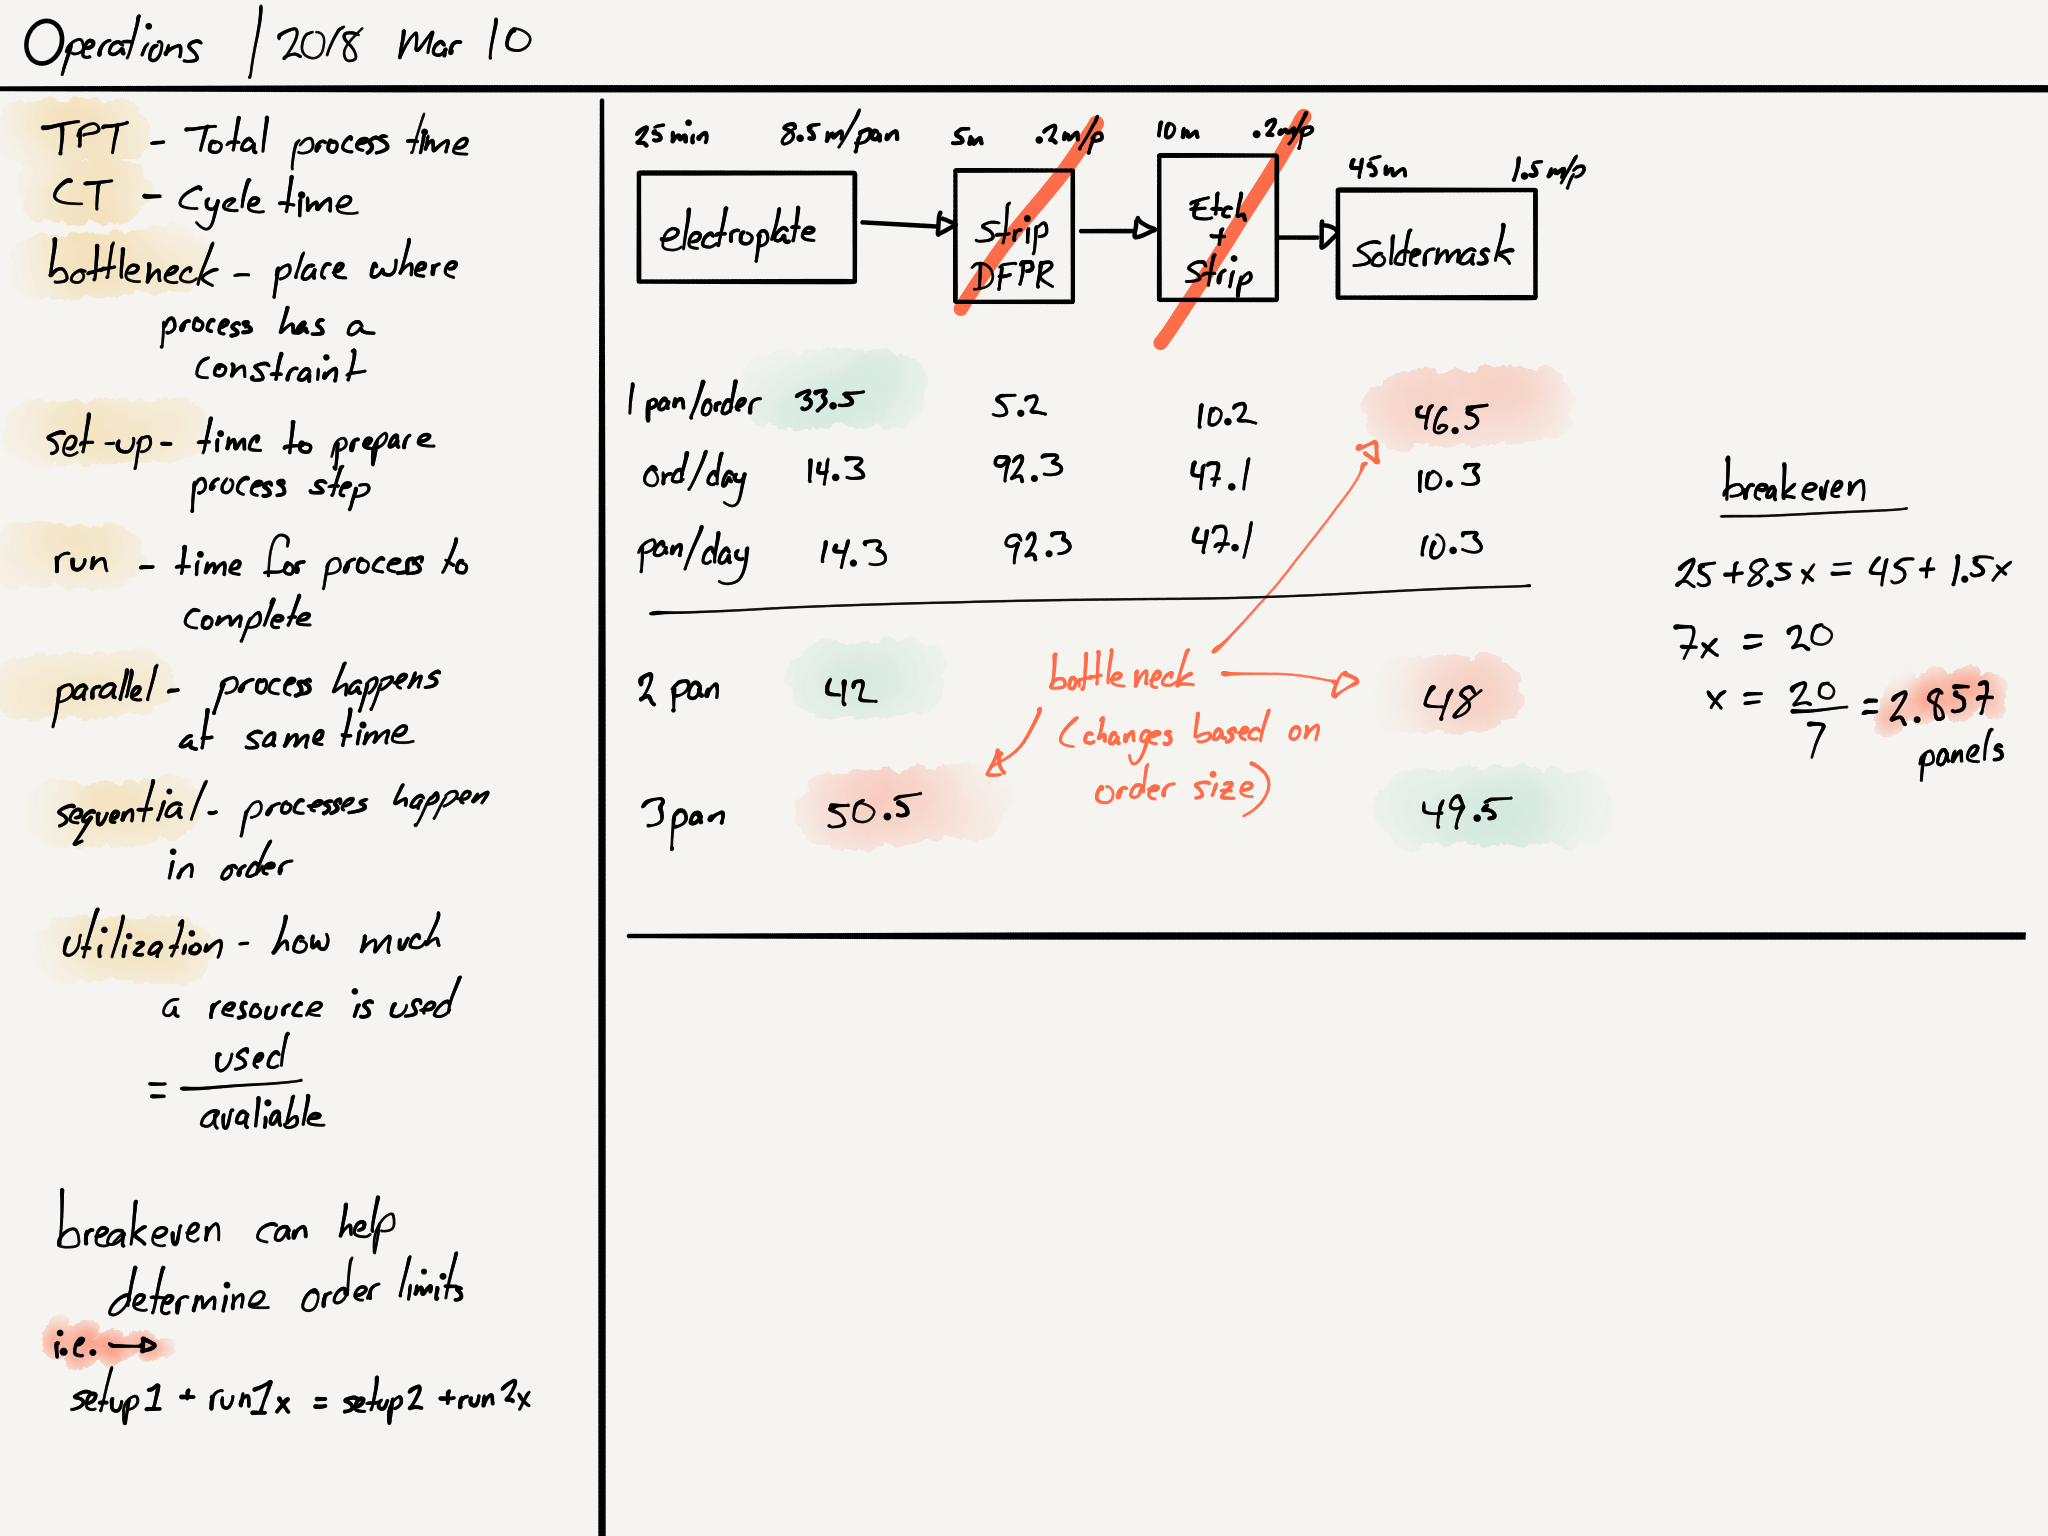 Operations | 2018 Mar 10
TPT - Total process time
CT - Cycle time
bottleneck - place where
process has a
constraint
set-up - time to prepare
process step
run - time for process to
complete
parallel - process happens
at same time
sequential - processes happen
in order
utilization - how much
a resource is used
= used
avaliable
breakeven can help
determine order limits
i.e. →
setup1 + run1x = setup2 + run2x
25 min 8.5 m/pan 5m .2m/p 10m .2m/p 45m 1.5 m/p
electroplate
strip
DFPR
Etch
+
Strip
Soldermask
1 pan/order 33.5 5.2 10.2 46.5
ord/day 14.3 92.3 47.1 10.3
pan/day 14.3 92.3 47.1 10.3
2 pan 42 48
3 pan 50.5 49.5
bottleneck
(changes based on
order size)
breakeven
25+8.5x = 45+1.5x
7x = 20
x = 20/7 = 2.857
panels